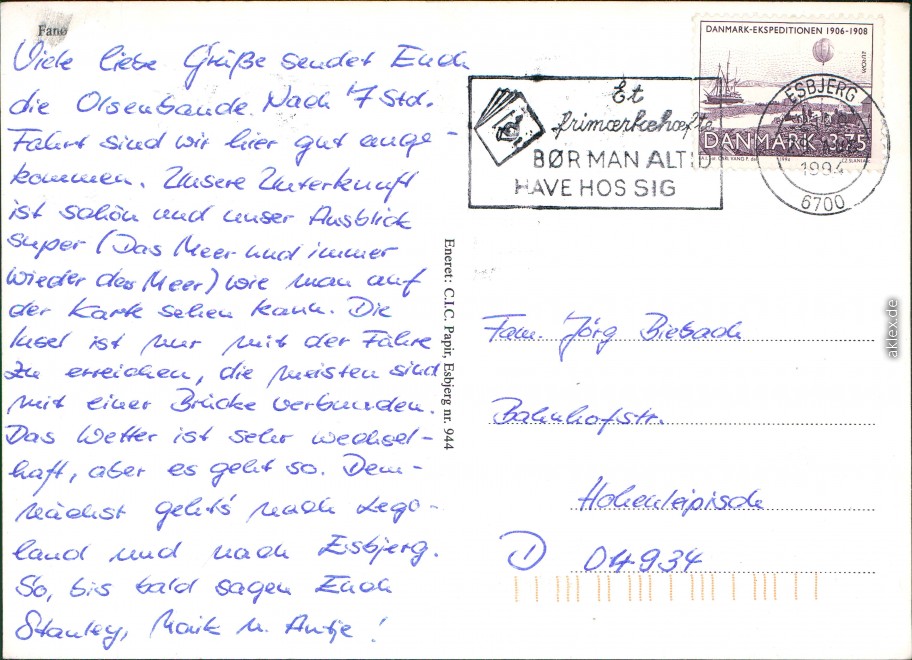 Fanø
Viele liebe Grüße sendet Euch
die Olsenbande. Nach 7 Std.
Fahrt sind wir hier gut ange-
kommen. Unsere Unterkunft
ist schön und unser Ausblick
super (Das Meer und immer
wieder das Meer) wie man auf
der Karte sehen kann. Die
Insel ist nur mit der Fähre
zu erreichen, die meisten sind
mit einer Brücke verbunden.
Das Wetter ist sehr wechsel-
haft, aber es geht so. Dem-
nächst geht's nach Lego-
land und nach Esbjerg.
So, bis bald sagen Euch
Stanley, Maik u. Antje!
Eneret: C.I.C. Papir, Esbjerg nr. 944
Et
frimærkehæfte
BØR MAN ALTID
HAVE HOS SIG
DANMARK-EKSPEDITIONEN 1906-1908
EUROPA
DANMARK 3.75
ESBJERG
1994
6700
Fam. Jörg Biebach
Bahnhofstr.
Hohenleipisch
D 04934
aklex.de